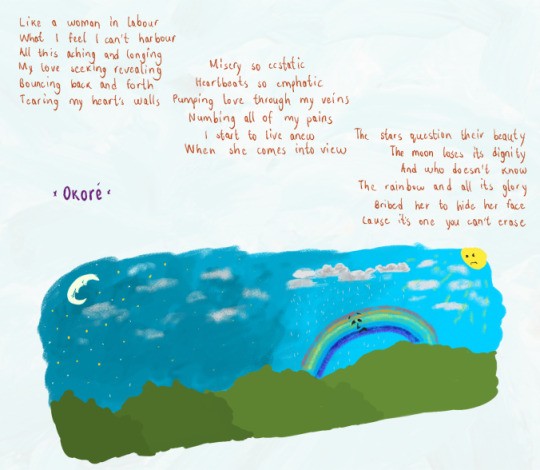 Like a woman in labour
What I feel I can't harbour
All this aching and longing
My love seeking revealing
Bouncing back and forth
Tearing my heart's walls
Misery so ecstatic
Heartbeats so emphatic
Pumping love through my veins
Numbing all of my pains
I start to live anew
When she comes into view
The stars question their beauty
The moon loses its dignity
And who doesn't know
The rainbow and all its glory
Bribed her to hide her face
Cause it's one you can't erase
Okoré